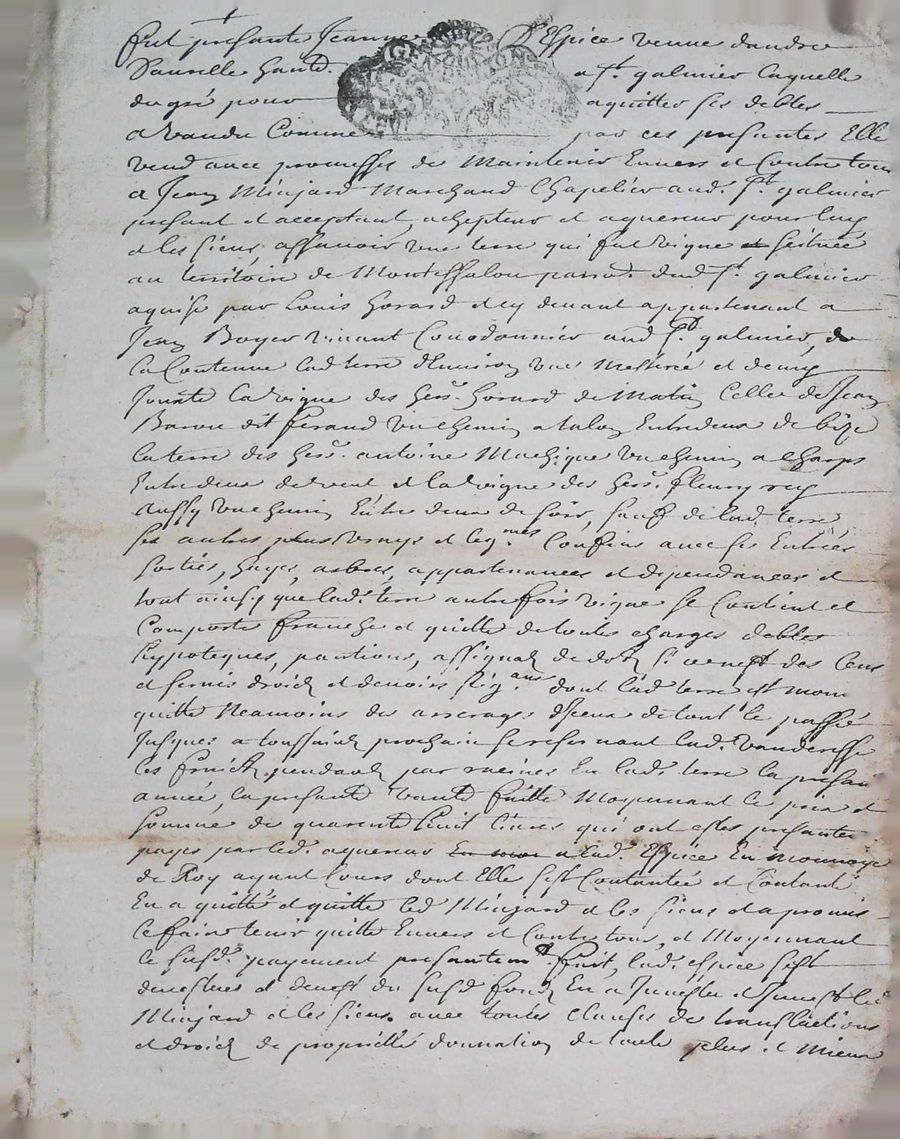 fut presante Jeanne D'Espice veuve dandre
Saurelle habit. a St. galmier laquelle
du gré pour aquitter ses debtes
a vandu Comme par ces presantes Elle
vend avec promesses de Maintenir Envers et Contre tous
a Jean Minjard Marchand Chapelier aud. St. galmier
presant et acceptant, achepteur et aquereur pour luy
et les siens, assavoir une terre qui fut vigne scituée
au territoire de parroi. dud St. galmier
aquise par Louis Gorard et cy devant appartenant a
Jean Boyer vivant Courdonnier aud St. galmier, de
la Contenue lad terre d'Environ une Mestrée et demy
Jouxte la vigne des hers. Gorard de Matin Celle de Jean
Barou dit feraud un chemin Entredeux de bize
la terre des hers. antoine un chemin a Chars
Entredeux de vent et la vigne des hers. fleury rey
Aussy un chemin Entre deux de soir, sauf de lad. terre
ses autres plus vrays et legmes. Confins avec ses Entrées
sorties, hayes, arbres, appartenances et dependances et
tout ainsy que lad. terre autrefois vigne se Contient et
Comporte franche et quitte de toutes charges debtes
hypoteques, pantions, des Cens
et servis droicts et devoirs dont lad terre est mouv
quitte Neamoins des arrerages d'Iceux de tout le passé
Jusques a toussaint prochain se reservant lad. vanderesse
les fruicts pendants par racines En lad. terre la presan
année, la presante vante faitte Moyennant le prix et
somme de quarente huit livres qui ont estes presante
payes par led. aquereur a lad. Espice En monnoye
de Roy ayant Cours dont Elle s'est Contantée et Contant
En a quitté et quitte led Minjard et les siens et a promis
le faire tenir quitte Envers et Contre tous, et Moyennant
le susd. payement presantemt. fait, lad. espice s'est
devestue et devest du susd fond En a Investu et Invest led
Minjard et les siens avec toutes Clauses de translactions
et droict de proprietté donnation de toute plus et mieux